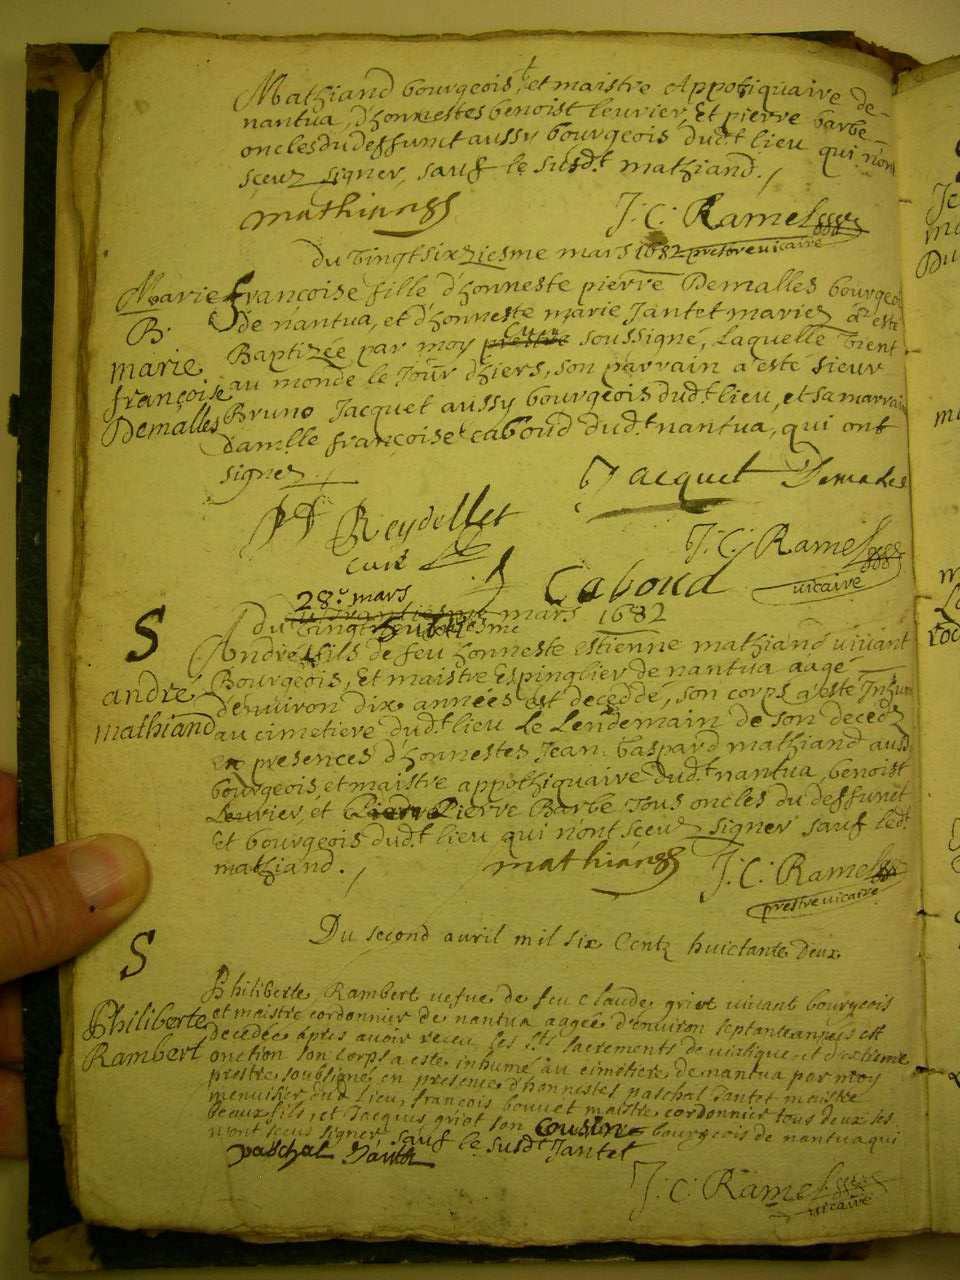 Mathiand bourgeois, et maistre Appotiquaire de
nantua, d'honnestes benoist leurier, et pierre barbe
oncles du deffunct aussy bourgeois dud.t lieu qui n'ont
sçeuz signer, sauf le susd.t mathiand./
mathiand
J. C. Ramel
prestre vicaire
du vingt sixziesme mars 1682
Marie françoise fille d'honneste pierre Demalles bourgeois
de nantua, et d'honneste marie Jantet mariez à esté
Baptizée par moy prestre curé soussigné, Laquelle vient
au monde le Jour d'hiers, son parrain a esté sieur
Bruno Jacquet aussy bourgeois dud.t lieu, et sa marraine
damlle françoise caboud dud.t nantua, qui ont
signez./
B.
marie
françoise
Demalles
B Jacquet Demales
Reydellet
curé
J. C. Ramel
vicaire
Caboud
28.e mars
du mars 1682
S
andré
mathiand
André fils de feu honneste estienne mathiand vivant
Bourgeois, et maistre Espinglier de nantua aagé
d'environ dix années est decedde, son corps a esté Inhumé
au cimetiere dud.t lieu Le Lendemain de son decedz
en presences d'honnestes Jean Gaspard mathiand aussy
bourgeois, et maistre appothiquaire dud.t nantua, benoist
Leurier, et Pierre Barbe Tous oncles du deffunct
et bourgeois dud.t lieu qui n'ont sceuz signer sauf led.t
mathiand./
mathiand
J. C. Ramel
prestre vicaire
Du second avril mil six Centz huictante Deux
S
Philiberte
Rambert
Philiberte Rambert vefve de feu Claude griot vivant bourgeois
et maistre cordonnier de nantua aagée d'environ septante années est
decedée apres avoir receu les sts sacrements de viatique et d'extreme
onction son corps a esté inhumé au cimetiere de nantua par moy
prestre soubsigné en presence d'honnestes paschal Jantet maistre
menuisier dud. Lieu, françois bouuet maistre cordonnier tous deux ses
beaux fils, et Jacques griot son cousin bourgeois de nantua qui
n'ont sceus signer sauf le susd.t Jantet
paschal Jantet
J. C. Ramel
vicaire